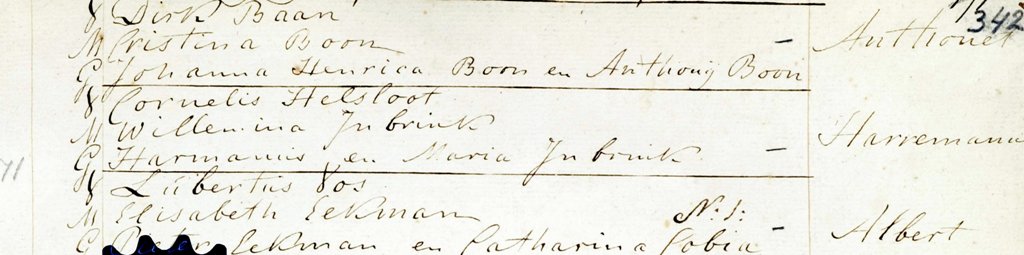 V Dirk Baan
M Cristina Boon - Anthonet
342
G Johanna Henrica Boon en Anthonij Boon
V Cornelis Helsloot
M Willemina Inbrink Harremanu
G Harmanus en Maria Inbrink -
71
V Lubertus Vos
M Elisabeth Eekman N: 1:
G Pieter Eekman en Catharina Cobia - Albert